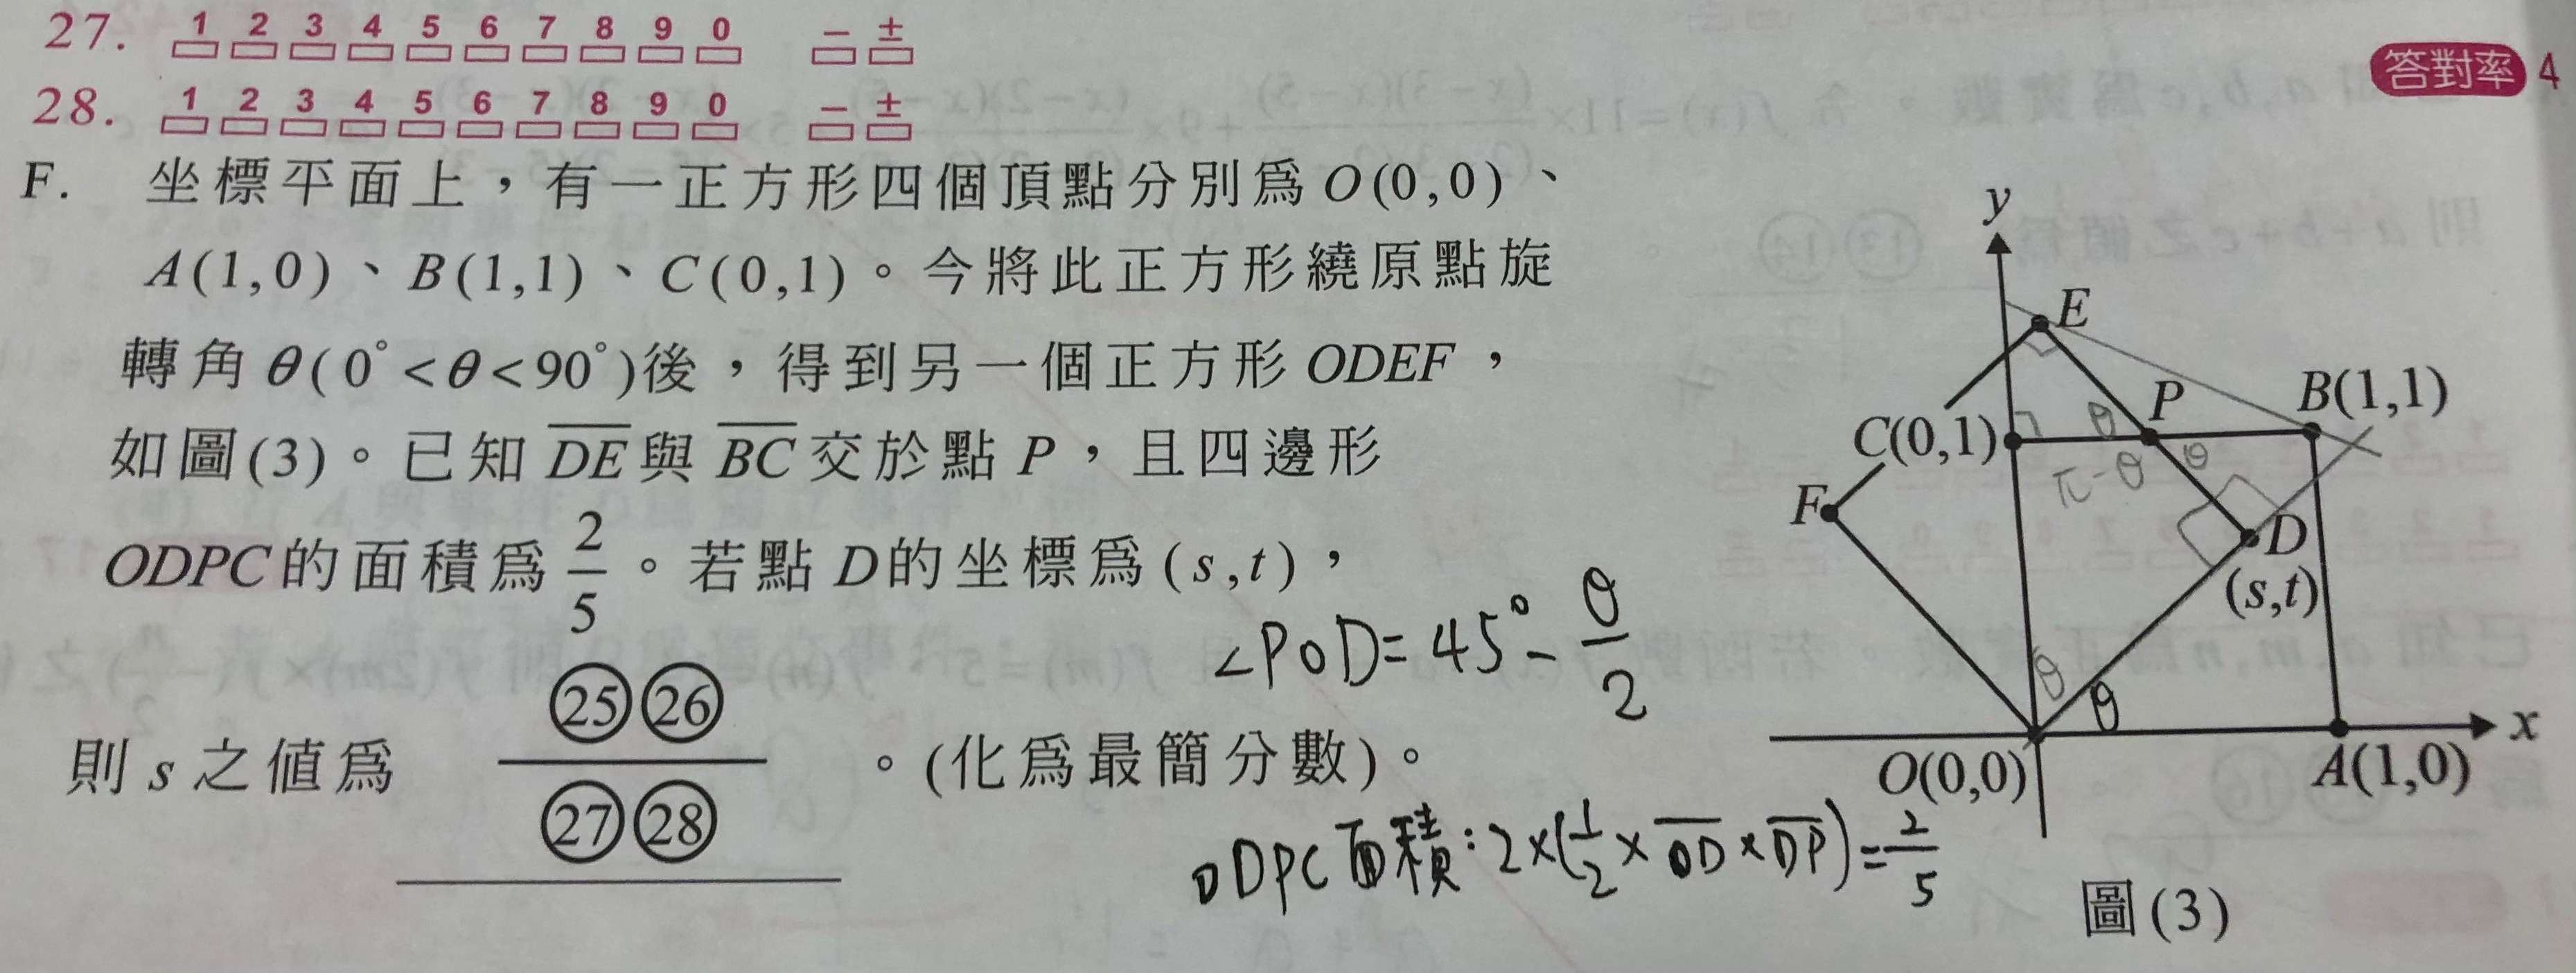 27. 1 2 3 4 5 6 7 8 9 0 − ±
答對率 4
28. 1 2 3 4 5 6 7 8 9 0 − ±
F. 坐標平面上，有一正方形四個頂點分別為O(0,0)、
A(1,0)、B(1,1)、C(0,1)。今將此正方形繞原點旋
轉角θ(0°<θ<90°)後，得到另一個正方形ODEF，
如圖(3)。已知D̅E̅與B̅C̅交於點P，且四邊形
ODPC的面積為2/5。若點D的坐標為(s,t)，
則s之值為 ㉕㉖/㉗㉘ 。(化為最簡分數)。
∠POD=45°-θ/2
ODPC面積:2×(1/2×O̅D̅×D̅P̅)=2/5
y
E
P
B(1,1)
θ
C(0,1)
θ
π-θ
F
D
(s,t)
θ
θ
x
O(0,0)
A(1,0)
圖(3)